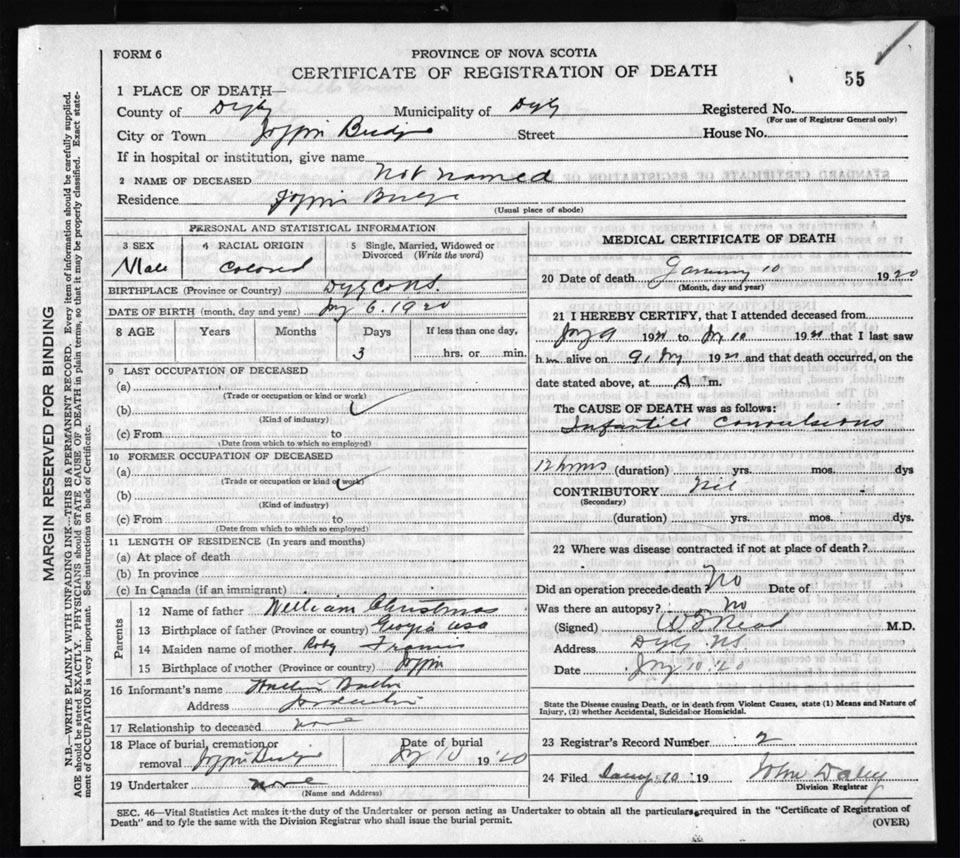 FORM 6
PROVINCE OF NOVA SCOTIA
CERTIFICATE OF REGISTRATION OF DEATH
55
1 PLACE OF DEATH—
County of Digby Municipality of Digby Registered No.
(For use of Registrar General only)
City or Town Joggin Bridge Street House No.
If in hospital or institution, give name
2 NAME OF DECEASED Not named
Residence Joggin Bridge
(Usual place of abode)
PERSONAL AND STATISTICAL INFORMATION
3 SEX 4 RACIAL ORIGIN 5 Single, Married, Widowed or Divorced (Write the word)
Male Colored
BIRTHPLACE (Province or Country) Digby Co N.S.
DATE OF BIRTH (month, day and year) Jny 6. 1920
8 AGE Years Months Days If less than one day,
3 hrs. or min.
9 LAST OCCUPATION OF DECEASED
(a)
(Trade or occupation or kind or work)
(b)
(Kind of industry)
(c) From to
(Date from which to which so employed)
10 FORMER OCCUPATION OF DECEASED
(a)
(Trade or occupation or kind of work)
(b)
(Kind of industry)
(c) From to
(Date from which to which so employed)
11 LENGTH OF RESIDENCE (In years and months)
(a) At place of death
(b) In province
(c) In Canada (if an immigrant)
Parents
12 Name of father William Christmas
13 Birthplace of father (Province or country) Georgia USA
14 Maiden name of mother Francis
15 Birthplace of mother (Province or country) Joggin
16 Informant's name
Address
17 Relationship to deceased none
18 Place of burial, cremation or removal Joggin Bridge Date of burial Jny 10 1920
19 Undertaker none
(Name and Address)
MEDICAL CERTIFICATE OF DEATH
20 Date of death January 10 1920
(Month, day and year)
21 I HEREBY CERTIFY, that I attended deceased from
Jny 9 19 to Jny 10 19 that I last saw
h alive on 9, Jny 19 and that death occurred, on the
date stated above, at A m.
The CAUSE OF DEATH was as follows:
Infantile Convulsions
12 hours (duration) yrs. mos. dys
CONTRIBUTORY Nil
(Secondary)
(duration) yrs. mos. dys.
22 Where was disease contracted if not at place of death?
Did an operation precede death? No Date of
Was there an autopsy? No
(Signed) M.D.
Address Digby NS
Date Jny 10. 20
State the Disease causing Death, or in death from Violent Causes, state (1) Means and Nature of Injury, (2) whether Accidental, Suicidal or Homicidal.
23 Registrar's Record Number 2
24 Filed 10 19 John Daley
Division Registrar
SEC. 46—Vital Statistics Act makes it the duty of the Undertaker or person acting as Undertaker to obtain all the particulars required in the "Certificate of Registration of
Death" and to fyle the same with the Division Registrar who shall issue the burial permit.
(OVER)
MARGIN RESERVED FOR BINDING
N.B.—WRITE PLAINLY WITH UNFADING INK—THIS IS A PERMANENT RECORD. Every item of information should be carefully supplied.
AGE should be stated EXACTLY. PHYSICIANS should STATE CAUSE OF DEATH in plain terms, so that it may be properly classified. Exact state-
ment of OCCUPATION is very important. See instructions on back of Certificate.